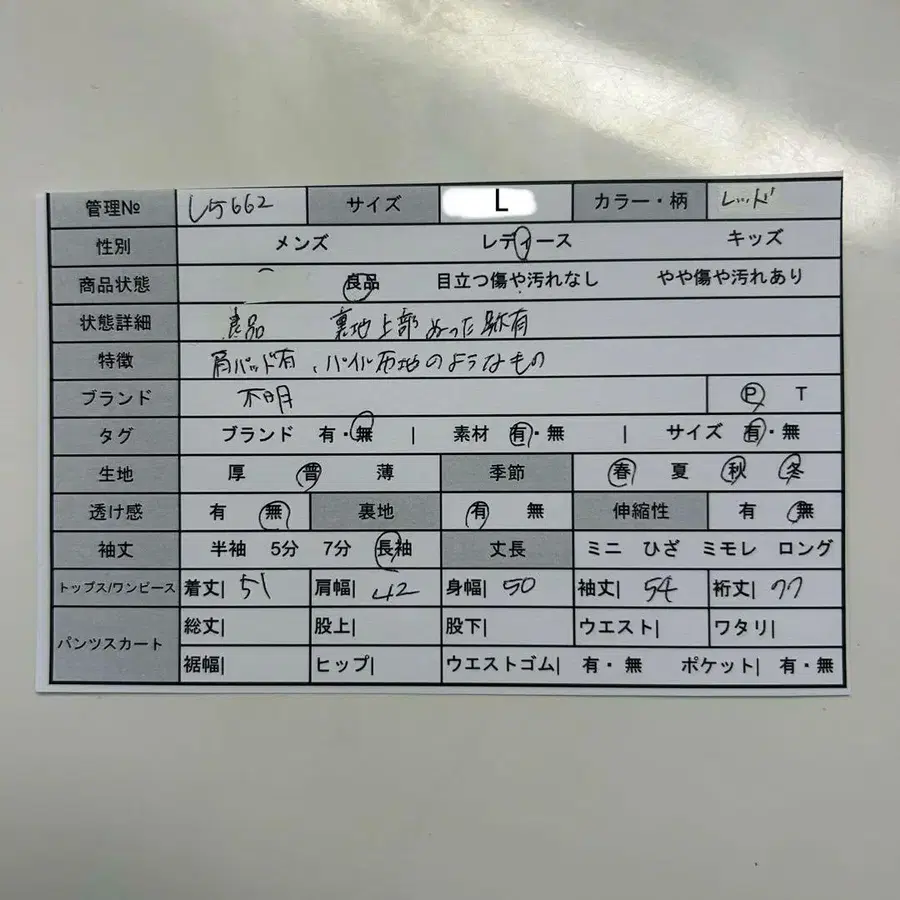 管理№ し5662 サイズ L カラー・柄 レッド
性別 メンズ レディース キッズ
商品状態 良品 目立つ傷や汚れなし やや傷や汚れあり
状態詳細 良品 裏地上部ぬった跡有
特徴 肩パッド有、パイル布地のようなもの
ブランド 不明 P T
タグ ブランド 有・無 | 素材 有・無 | サイズ 有・無
生地 厚 普 薄 季節 春 夏 秋 冬
透け感 有 無 裏地 有 無 伸縮性 有 無
袖丈 半袖 5分 7分 長袖 丈長 ミニ ひざ ミモレ ロング
トップス/ワンピース 着丈| 51 肩幅| 42 身幅| 50 袖丈| 54 裄丈| 77
パンツスカート 総丈| 股上| 股下| ウエスト| ワタリ|
裾幅| ヒップ| ウエストゴム| 有・無 ポケット| 有・無